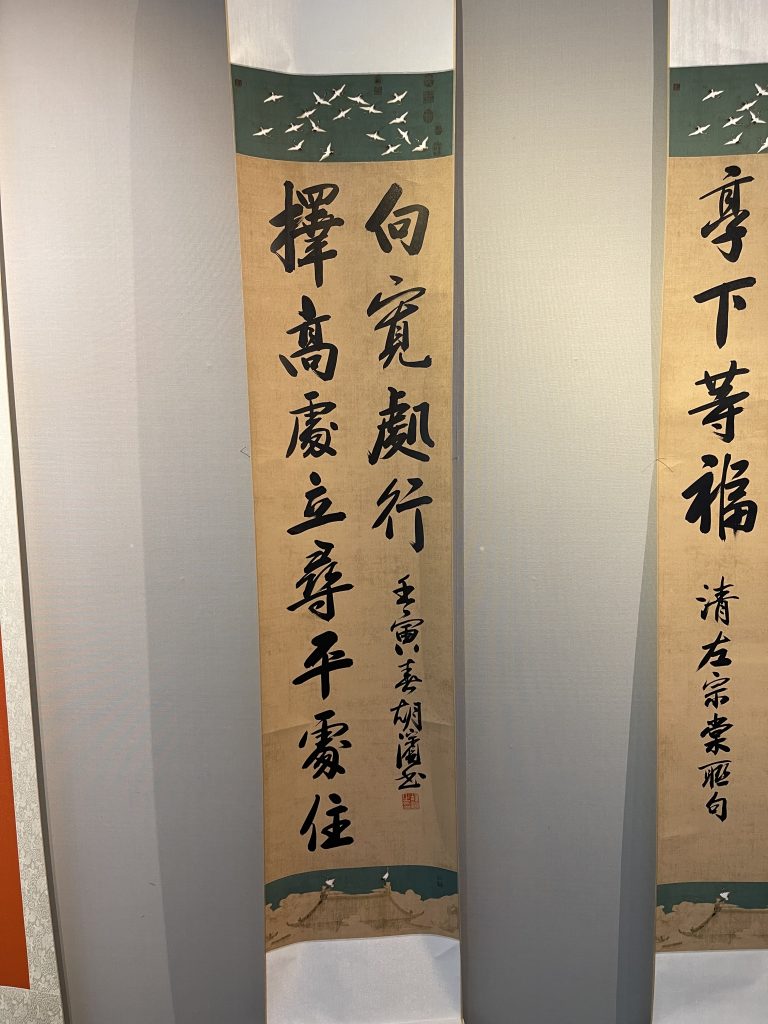 享下等福
清左宗棠聯句
擇高處立尋平處住
向寬處行
壬寅春胡書